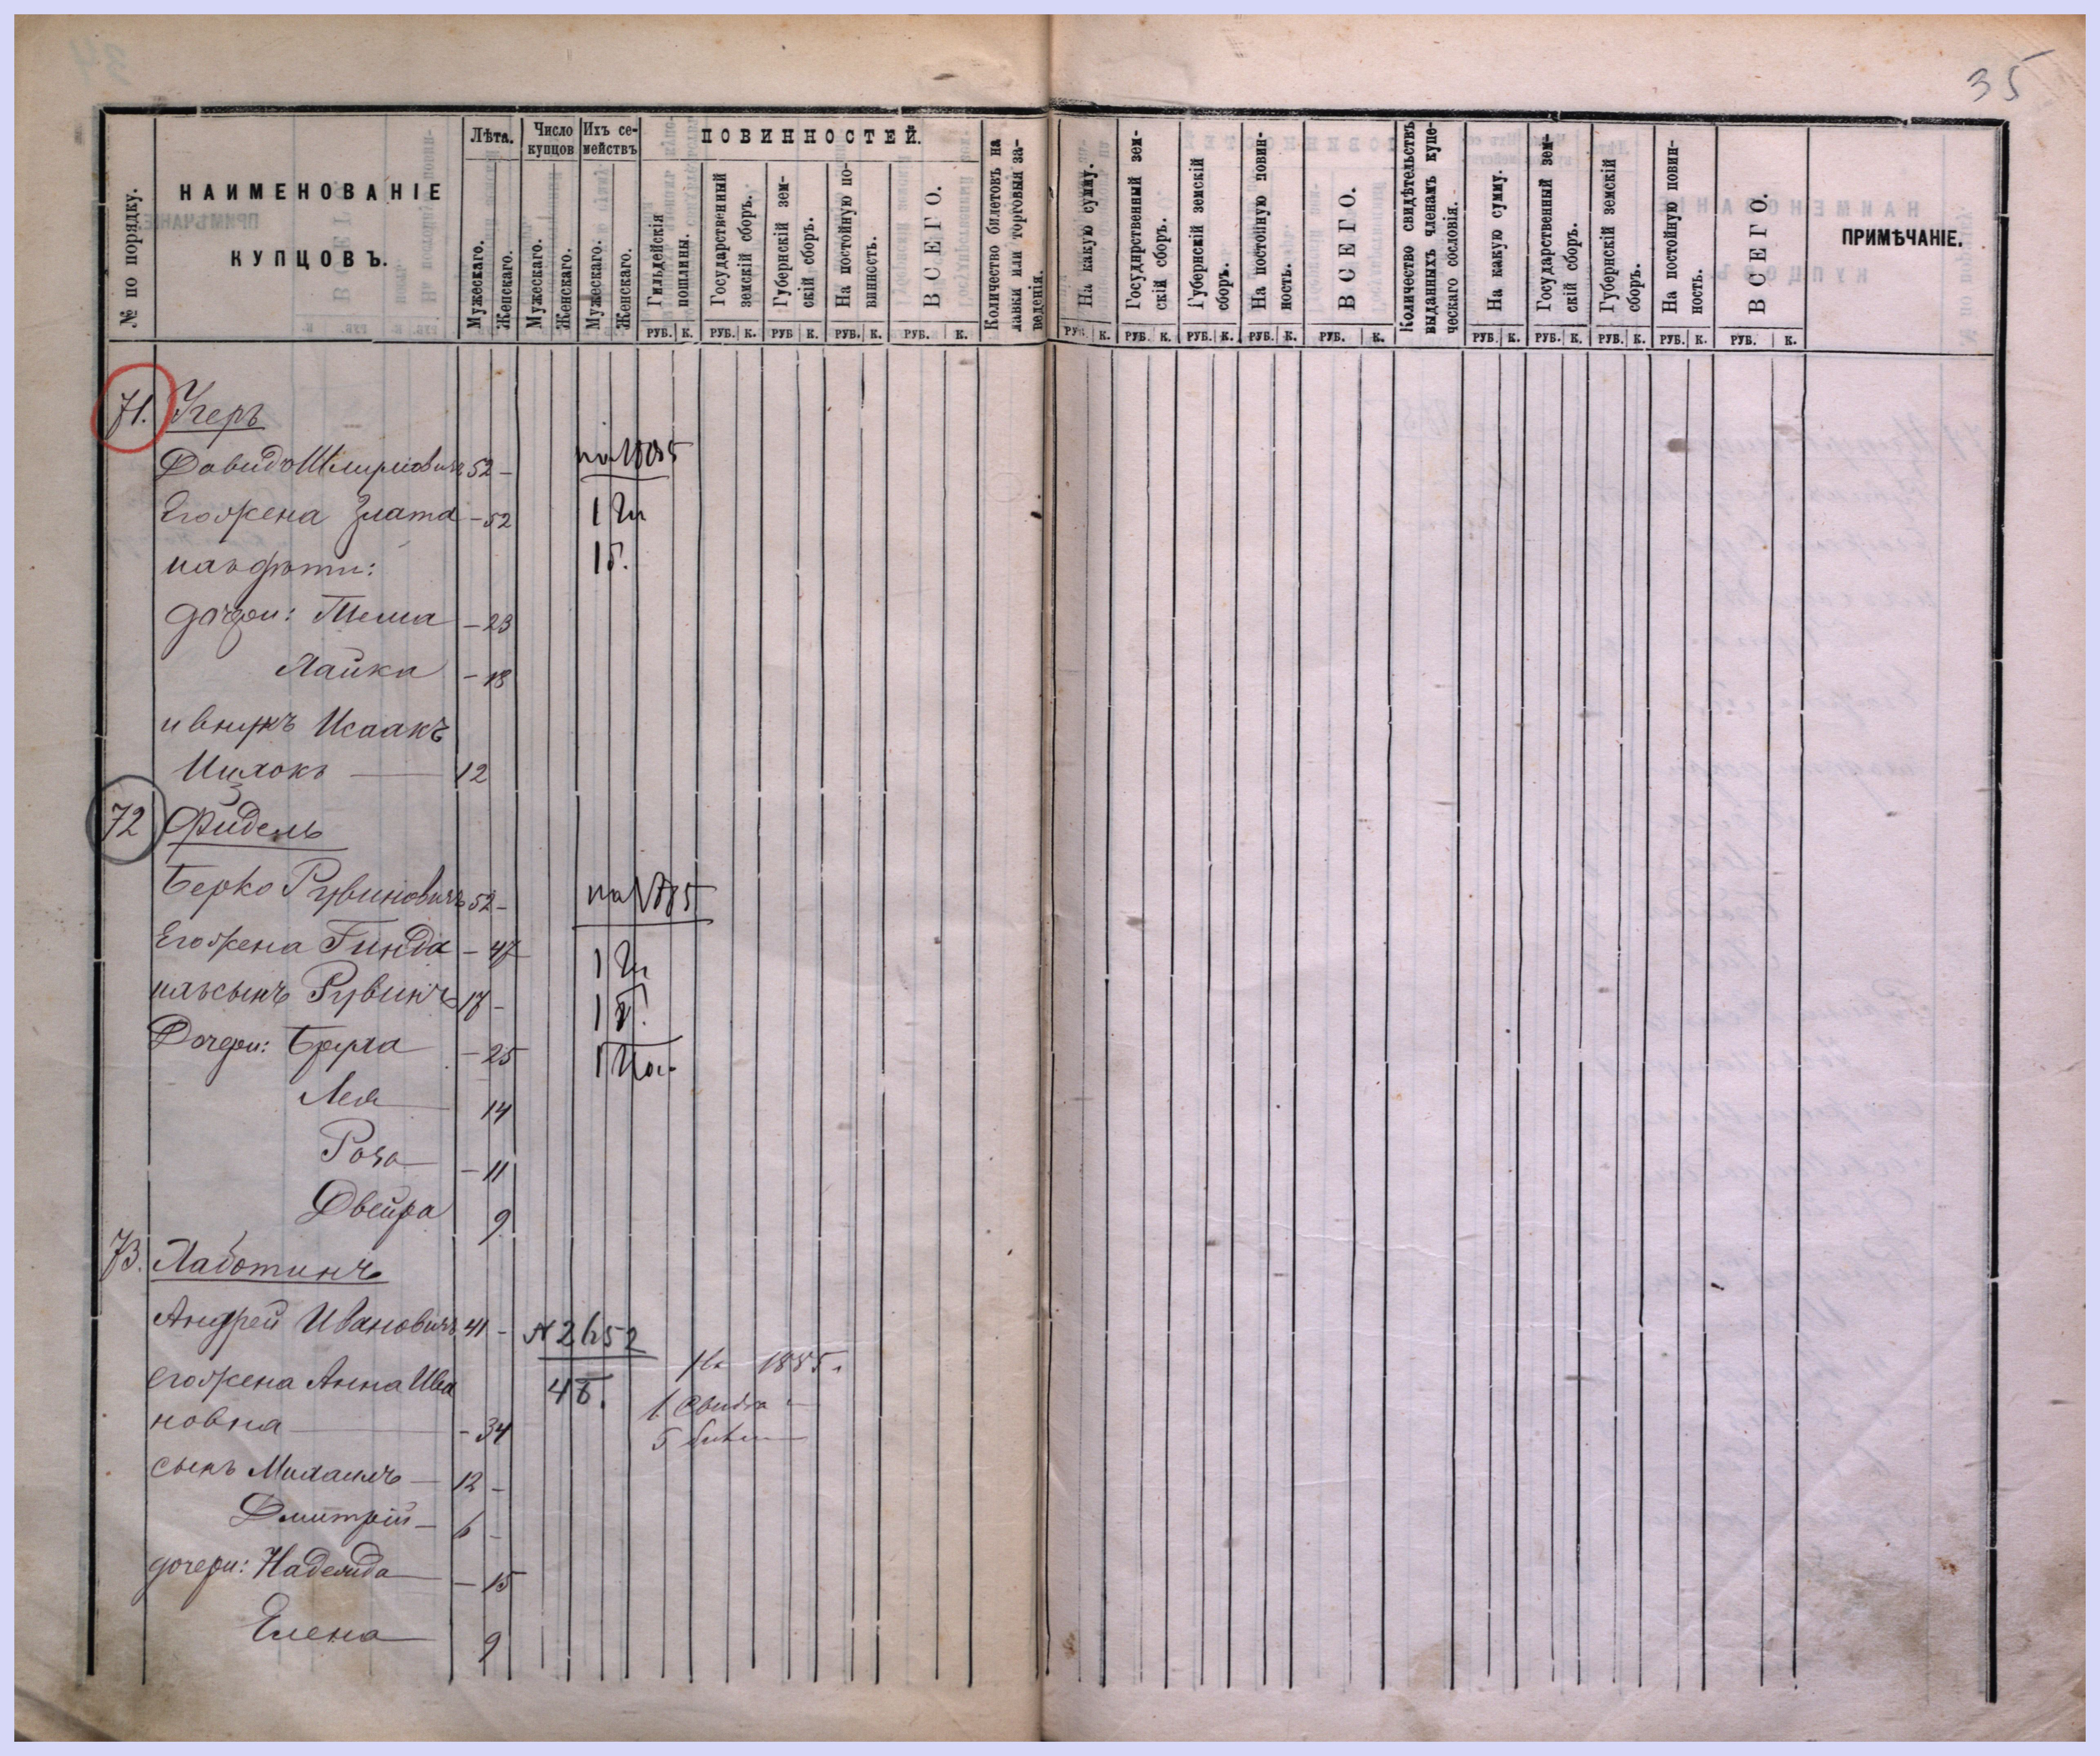 35
№ по порядку.
НАИМЕНОВАНІЕ
КУПЦОВЪ.
Лѣта.
Мужескаго.
Женскаго.
Число купцовъ
Мужескаго.
Женскаго.
Ихъ се-
мействъ
Мужескаго.
Женскаго.
ПОВИННОСТЕЙ.
Гильдейскія
пошлины.
Государственный
земскій сборъ.
Губернскій зем-
скій сборъ.
На постойную по-
винность.
ВСЕГО.
Количество билетовъ на
лавки или торговыя за-
веденія.
На какую сумму.
Государственный зем-
скій сборъ.
Губернскій земскій
сборъ.
На постойную повин-
ность.
ВСЕГО.
Количество свидѣтельствъ
выданныхъ членамъ купе-
ческаго сословія.
На какую сумму.
Государственный зем-
скій сборъ.
Губернскій земскій
сборъ.
На постойную повин-
ность.
ВСЕГО.
ПРИМѢЧАНІЕ.
РУБ. К. РУБ. К. РУБ К. РУБ. К. РУБ. К. РУБ. К. РУБ. К. РУБ. К. РУБ. К. РУБ. К. РУБ. К. РУБ. К. РУБ. К. РУБ. К. РУБ. К.
71. Угеръ
Давидъ 52 - на 1885
Его жена Злата - 52 1 Ги
ихъ дѣти: 1 б.
дочери: - 23
Лайка - 18
и внукъ Исаакъ
Ицхокъ 12
72 Фидель
Берко Рувиновичъ 52 - на 1885
Его жена Гинда - 47 1 Ги
ихъ сынъ Рувинъ 17 - 1 б.
Дочери: Бруха - 25
Лея 14
Роза - 11
Двейра 9
73. Лаботинъ
Андрей Ивановичъ 41 - № 2652
его жена Анна Ива 4 б. На 1885 г.
новна - 34 1 Свидѣт
сынъ Михаилъ - 12 - 5 билет
Дмитрій - 6 -
дочери: Надежда - 15
Елена 9